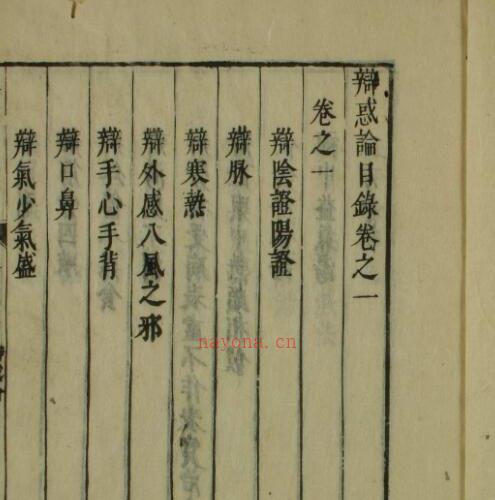 辯惑論目錄卷之一
卷之一
辯陰證陽證
辯脉
辯寒熱
辯外感八風之邪
辯手心手背
辯口鼻
辯氣少氣盛
nayona.cn